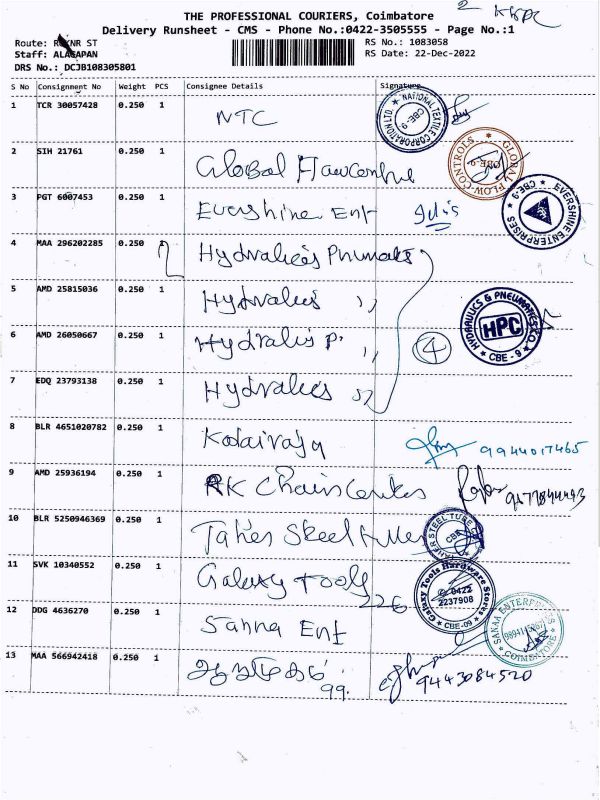 2 KSPC
THE PROFESSIONAL COURIERS, Coimbatore
Delivery Runsheet - CMS - Phone No.:0422-3505555 - Page No.:1
Route: NR ST
Staff: ALAGAPAN
DRS No.: DCJB108305801
RS No.: 1083058
RS Date: 22-Dec-2022
S No Consignment No Weight PCS Consignee Details Signature
1 TCR 30057428 0.250 1 NTC
NATIONAL TEXTILE CORPORATION LTD. CBE-9
2 SIH 21761 0.250 1 Global Flowcontrol
GLOBAL FLOW CONTROLS CBE-9
3 PGT 6007453 0.250 1 Evershine Ent
EVERSHINE ENTERPRISES CBE-9
4 MAA 296202285 0.250 1 Hydralics Pnumats
5 AMD 25815036 0.250 1 Hydralics ,,
HYDRAULICS & PNEUMATICS CO. HPC CBE - 9
6 AMD 26050667 0.250 1 Hydralis P. ,,
4
7 EDQ 23793138 0.250 1 Hydralics
8 BLR 4651020782 0.250 1 Kodairaja 9944017465
9 AMD 25936194 0.250 1 RK Chain Centre
10 BLR 5250946369 0.250 1 Taher Steel Tubes
STEEL TUBE CBE
11 SVK 10340552 0.250 1 Galaxy Tools
226
Galaxy Tools Hardware Stores 0422 2237908 CBE-09
12 DDG 4636270 0.250 1 Sanna Ent
SANAA ENTERPRISES COIMBATORE
13 MAA 566942418 0.250 1
99. 9443084520